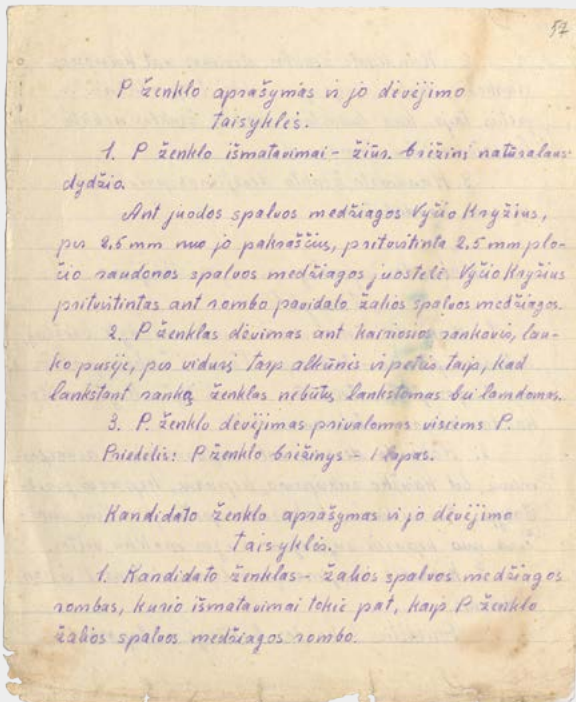 57
P ženklo aprašymas ir jo dėvėjimo
taisyklės.
1. P ženklo išmatavimai - žiūr. brėžinį natūralaus
dydžio.
Ant juodos spalvos medžiagos Vyčio Kryžius,
per 2,5 mm nuo jo pakraščių, pritvirtinta 2,5 mm plo-
čio raudonos spalvos medžiagos juostelė. Vyčio Kryžius
pritvirtintas ant rombo pavidalo žalios spalvos medžiagos.
2. P ženklas dėvimas ant kairiosios rankovės, lau-
ko pusėje, per vidurį tarp alkūnės ir peties taip, kad
lankstant ranką ženklas nebūtų lankstomas bei lamdomas.
3. P. ženklo dėvėjimas privalomas visiems P.
Priedėlis: P ženklo brėžinys - 1 lapas.
Kandidato ženklo aprašymas ir jo dėvėjimo
taisyklės.
1. Kandidato ženklas - žalios spalvos medžiagos
rombas, kurio išmatavimai tokie pat, kaip P ženklo
žalios spalvos medžiagos rombo.